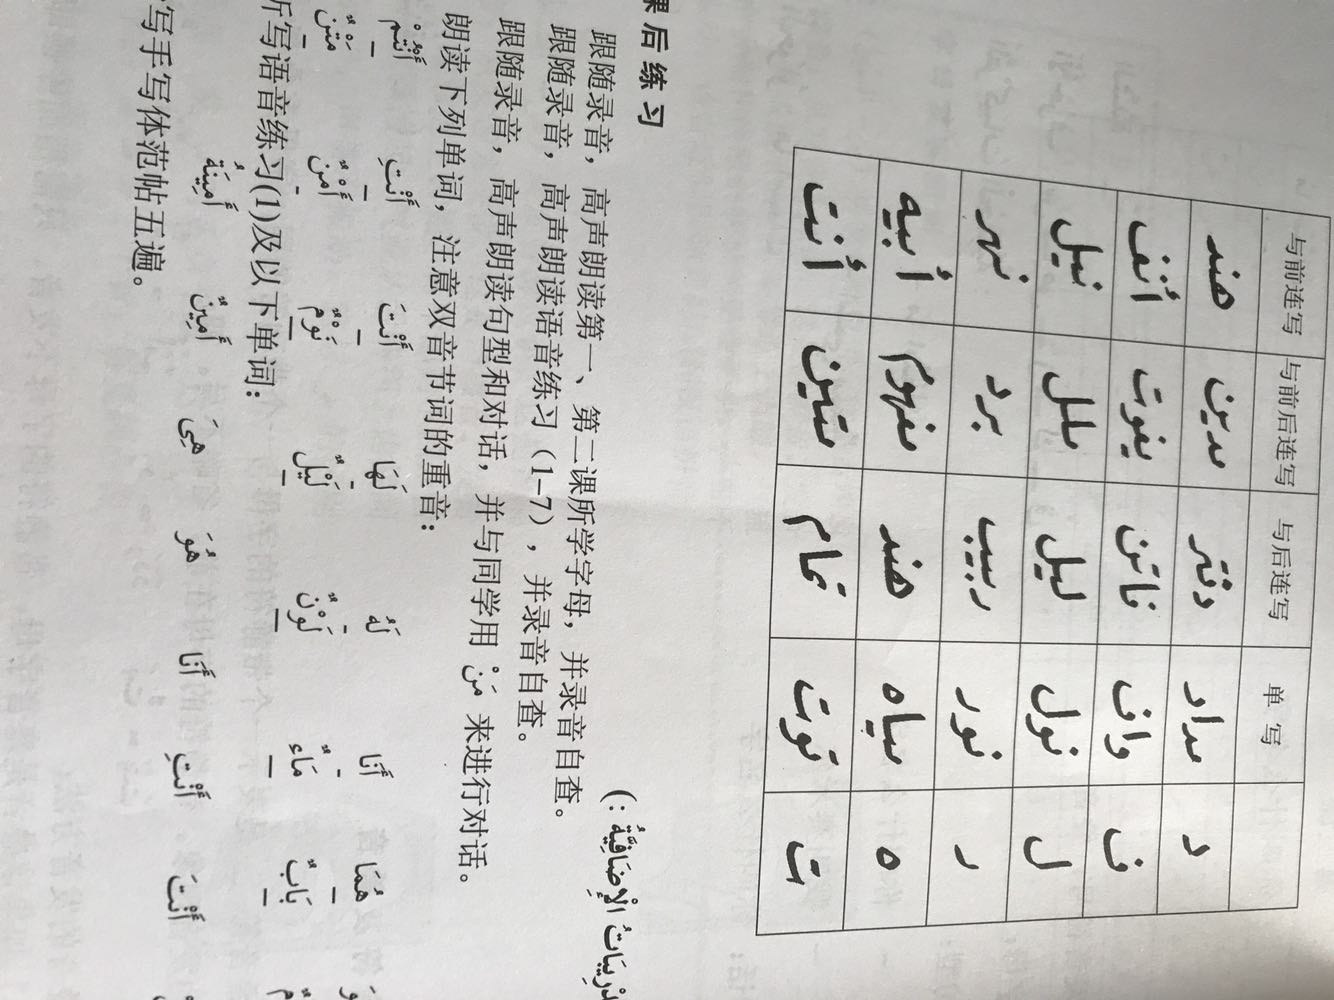 与前连写 与前后连写 与后连写 单写
د مداد دفتر مدين هند
ف واف فاتن يفوت أنف
ل نول ليل ملل نيل
ر نور ربيب برد نهر
ه مياه هند مفهوم أبيه
ت توت تمام متين أنت
课后练习
الْإِضَافِيَّةُ:)
跟随录音，高声朗读第一、第二课所学字母，并录音自查。
跟随录音，高声朗读语音练习（1-7），并录音自查。
跟随录音，高声朗读句型和对话，并与同学用 مَنْ 来进行对话。
朗读下列单词，注意双音节词的重音：
هُمَا أَنَا لَهُ لَهَا أَنْتَ أَنْتِ أَنْتُمْ
بَابٌ مَاءٌ لَوْنٌ لَيْلٌ نَوْمٌ أَمْنٌ مَتْنٌ
所写语音练习(1)及以下单词：
أَنْتَ أَنْتِ أَنَا هُوَ هِيَ أَمِينٌ أَمِينَةُ
写手写体范帖五遍。